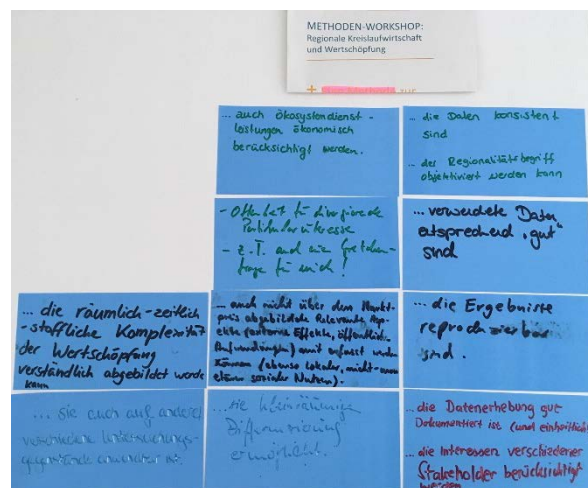 METHODEN-WORKSHOP:
Regionale Kreislaufwirtschaft
und Wertschöpfung
... auch Ökosystemdienst-
leistungen ökonomisch
berücksichtigt werden.
... die Daten konsistent
sind
... der Regionalitätsbegriff
objektiviert werden kann
- Offenheit für divergierende
Partikularinteresse
- z.T. auch eine Gretchen-
frage für mich!
... verwendete Daten
entsprechend "gut"
sind
... die räumlich-zeitlich
-stoffliche Komplexität
der Wertschöpfung
verständlich abgebildet werde
kann
... auch nicht über den Markt-
preis abgebildete Relevante Asp-
ekte (externe Effekte, öffentlich
) mit erfasst werden
können (ebenso lokaler, nicht-
sozialer Nutzen).
... die Ergebnisse
reproduzierbar
sind.
... sie auch auf andere
verschiedene Untersuchungs-
gegenstände anwendbar ist
... sie kleinräumige
Differenzierung
ermöglicht.
... die Datenerhebung gut
Dokumentiert ist (und einheitlich)
... die Interessen verschiedener
Stakeholder berücksichtigt
werden